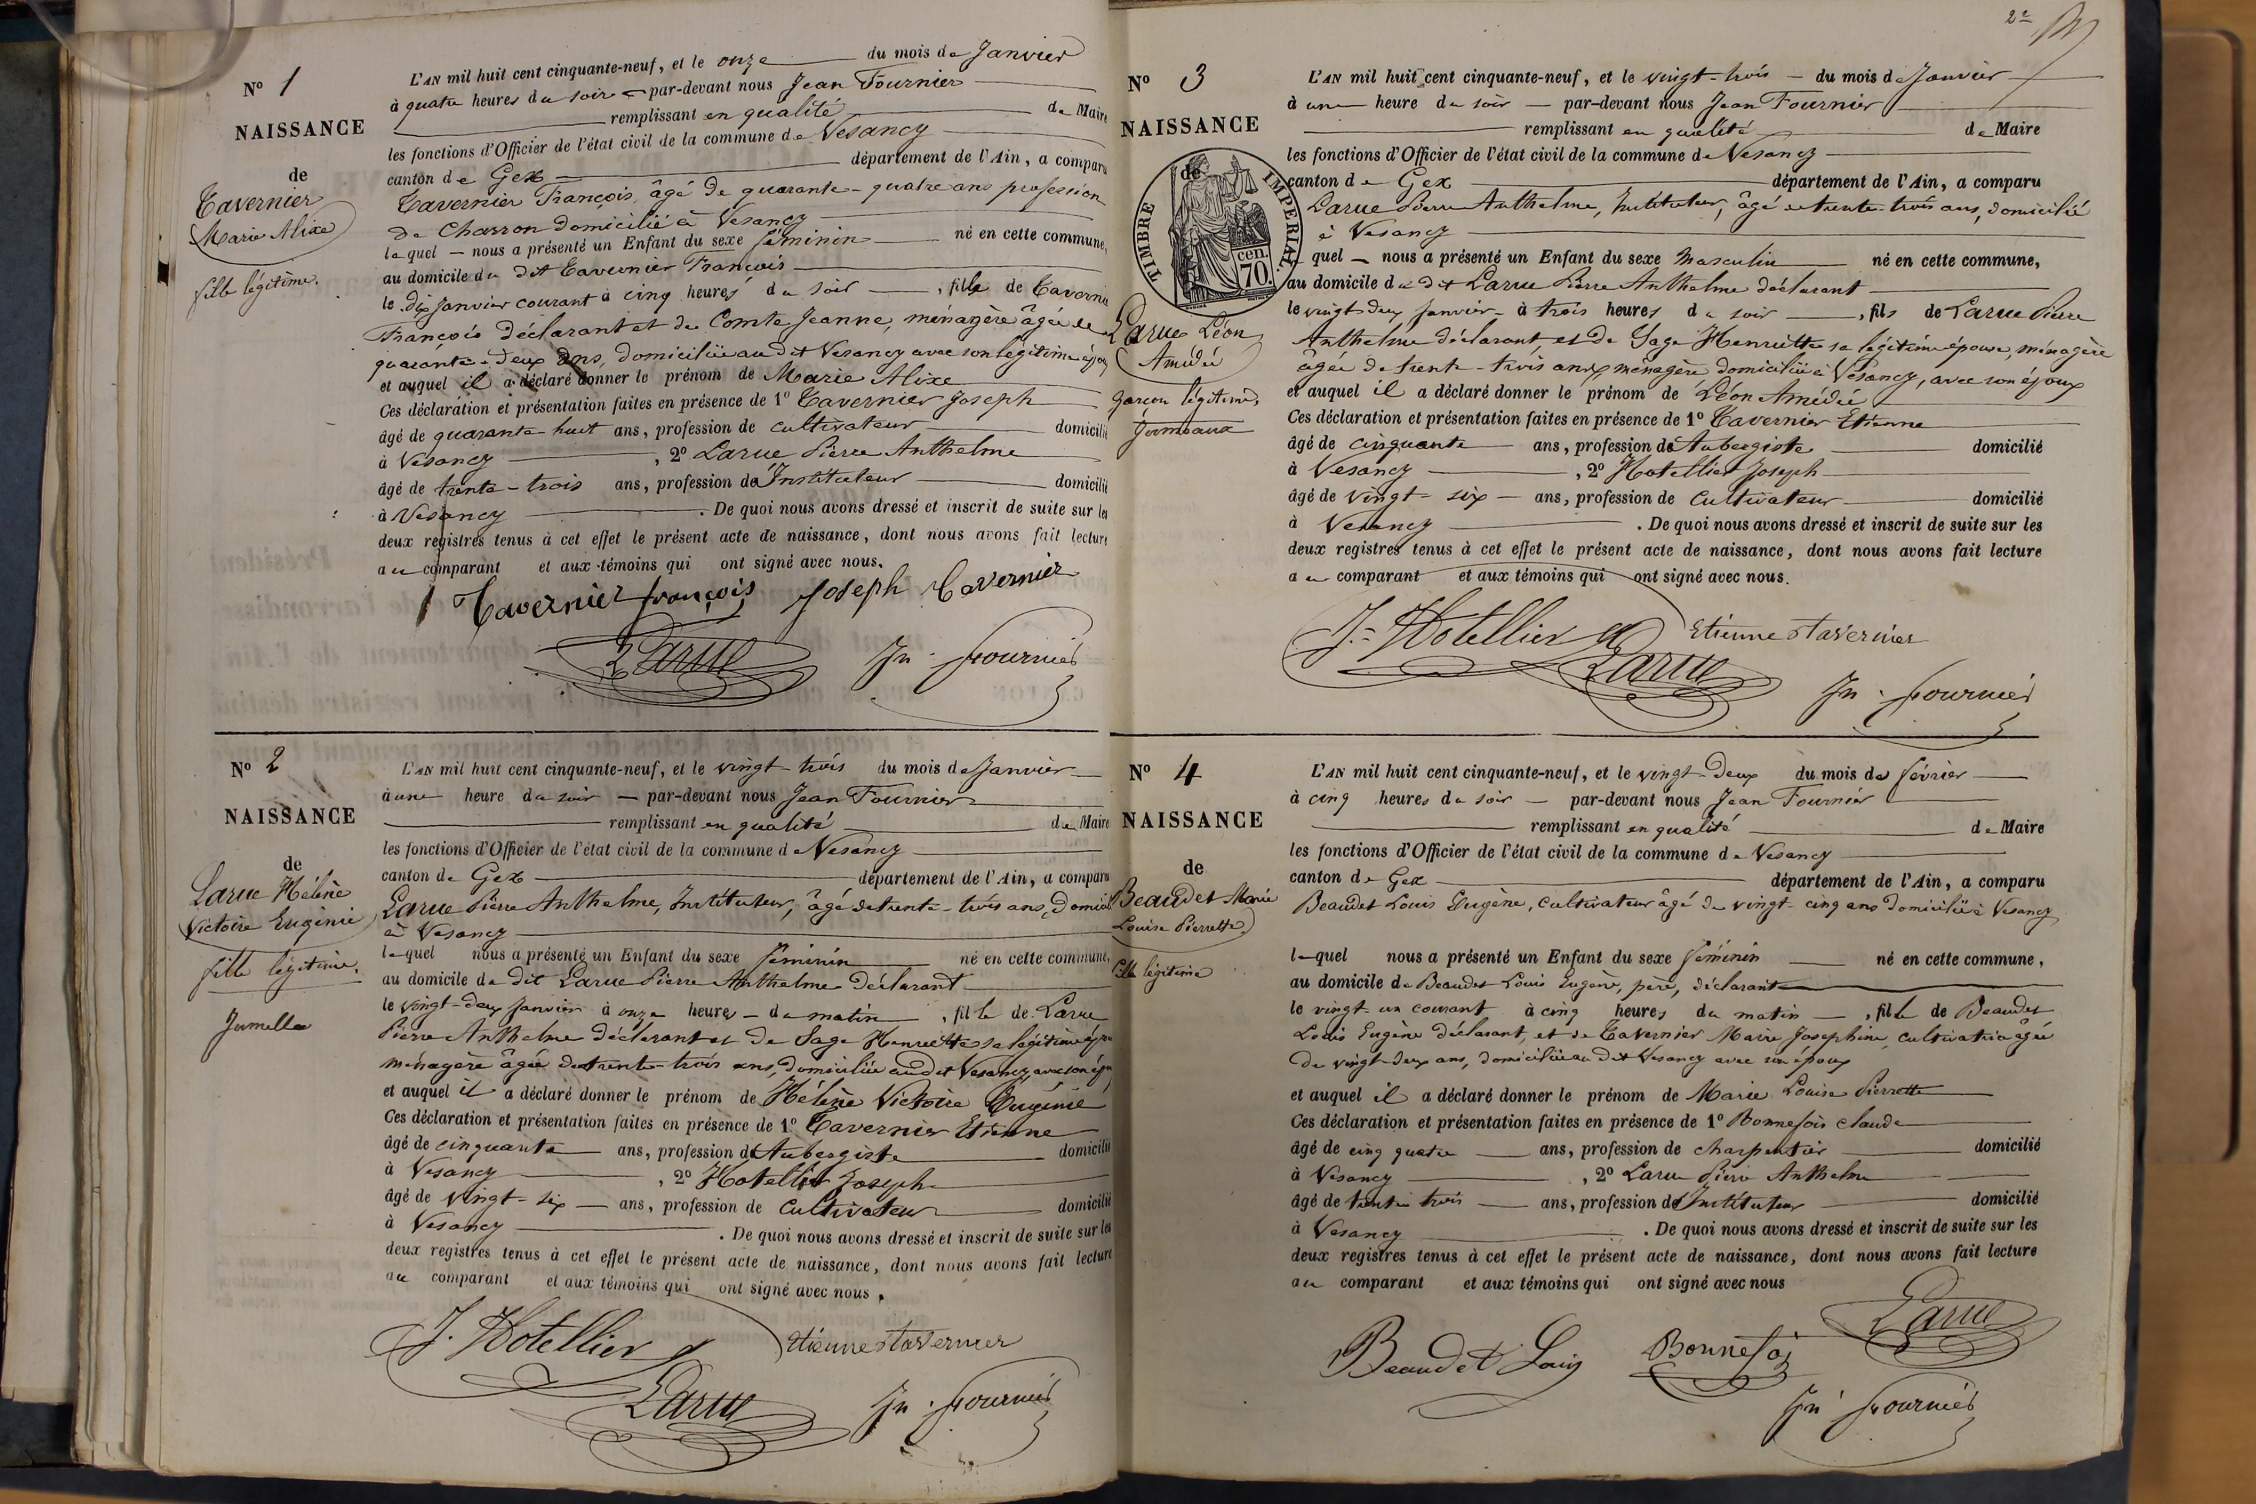 Nº 1
NAISSANCE
de
Tavernier
Marie Alixe
fille légitime.
L'AN mil huit cent cinquante-neuf, et le onze du mois de Janvier
à quatre heures du soir par-devant nous Jean Fournier
remplissant en qualité de Maire
les fonctions d'Officier de l'état civil de la commune de Vesancy
canton de Gex département de l'Ain, a comparu
Tavernier François, âgé de quarante-quatre ans profession
de Charron domicilié à Vesancy
lequel nous a présenté un Enfant du sexe féminin né en cette commune,
au domicile du dit Tavernier François
le dix Janvier courant à cinq heures du soir, fille de Tavernier
François déclarant et de Comte Jeanne, ménagère âgée de
quarante-deux ans, domiciliée au dit Vesancy avec son légitime époux
et auquel il a déclaré donner le prénom de Marie Alixe
Ces déclaration et présentation faites en présence de 1º Tavernier Joseph
âgé de quarante-huit ans, profession de cultivateur domicilié
à Vesancy, 2º Larue Pierre Anthelme
âgé de trente-trois ans, profession de Instituteur domicilié
à Vesancy. De quoi nous avons dressé et inscrit de suite sur les
deux registres tenus à cet effet le présent acte de naissance, dont nous avons fait lecture
au comparant et aux témoins qui ont signé avec nous.
Tavernier françois Joseph Tavernier
Larue Jn. Fournier
Nº 2
NAISSANCE
de
Larue Hélène
Victoire Eugénie
fille légitime.
Jumelle
L'AN mil huit cent cinquante-neuf, et le vingt-trois du mois de Janvier
à une heure du soir par-devant nous Jean Fournier
remplissant en qualité de Maire
les fonctions d'Officier de l'état civil de la commune de Vesancy
canton de Gex département de l'Ain, a comparu
Larue Pierre Anthelme, Instituteur, âgé de trente-trois ans, domicilié
à Vesancy
lequel nous a présenté un Enfant du sexe féminin né en cette commune,
au domicile de dit Larue Pierre Anthelme déclarant
le vingt-deux Janvier à onze heures de matin, fille de Larue
Pierre Anthelme déclarant et de Sage Henriette sa légitime épouse
ménagère âgée de trente-trois ans, domiciliée audit Vesancy avec son époux
et auquel il a déclaré donner le prénom de Hélène Victoire Eugénie
Ces déclaration et présentation faites en présence de 1º Tavernier Etienne
âgé de cinquante ans, profession de Aubergiste domicilié
à Vesancy, 2º Hotellier Joseph
âgé de vingt-six ans, profession de Cultivateur domicilié
à Vesancy. De quoi nous avons dressé et inscrit de suite sur les
deux registres tenus à cet effet le présent acte de naissance, dont nous avons fait lecture
au comparant et aux témoins qui ont signé avec nous.
J. Hotellier Etienne Tavernier
Larue Jn. Fournier
2e
Nº 3
NAISSANCE
de
TIMBRE IMPERIAL.
70 cen.
Larue Léon
Amédé
garçon légitime,
Jumeaux
L'AN mil huit cent cinquante-neuf, et le vingt-trois du mois de Janvier
à une heure du soir par-devant nous Jean Fournier
remplissant en qualité de Maire
les fonctions d'Officier de l'état civil de la commune de Vesancy
canton de Gex département de l'Ain, a comparu
Larue Pierre Anthelme, Instituteur, âgé de trente-trois ans, domicilié
à Vesancy
quel nous a présenté un Enfant du sexe masculin né en cette commune,
au domicile du dit Larue Pierre Anthelme déclarant
le vingt-deux Janvier à trois heures du soir, fils de Larue Pierre
Anthelme déclarant et de Sage Henriette sa légitime épouse, ménagère
âgée de trente-trois ans, ménagère domiciliée à Vesancy, avec son époux
et auquel il a déclaré donner le prénom de Léon Amédé
Ces déclaration et présentation faites en présence de 1º Tavernier Etienne
âgé de cinquante ans, profession de Aubergiste domicilié
à Vesancy, 2º Hotellier Joseph
âgé de vingt-six ans, profession de Cultivateur domicilié
à Vesancy. De quoi nous avons dressé et inscrit de suite sur les
deux registres tenus à cet effet le présent acte de naissance, dont nous avons fait lecture
au comparant et aux témoins qui ont signé avec nous.
J. Hotellier Etienne Tavernier
Larue Jn. Fournier
Nº 4
NAISSANCE
de
Beaudet Marie
Louise Pierrette
fille légitime
L'AN mil huit cent cinquante-neuf, et le vingt-deux du mois de février
à cinq heures du soir par-devant nous Jean Fournier
remplissant en qualité de Maire
les fonctions d'Officier de l'état civil de la commune de Vesancy
canton de Gex département de l'Ain, a comparu
Beaudet Louis Eugène, cultivateur âgé de vingt-cinq ans domicilié à Vesancy
lequel nous a présenté un Enfant du sexe féminin né en cette commune,
au domicile de Beaudet Louis Eugène, père, déclarant
le vingt-un courant à cinq heures du matin, fille de Beaudet
Louis Eugène déclarant, et de Tavernier Marie Josephine, cultivatrice âgée
de vingt-deux ans, domiciliée au dit Vesancy avec son époux
et auquel il a déclaré donner le prénom de Marie Louise Pierrette
Ces déclaration et présentation faites en présence de 1º Bonnefois claude
âgé de cinq quatre ans, profession de charpentier domicilié
à Vesancy, 2º Larue Pierre Anthelme
âgé de trente trois ans, profession de Instituteur domicilié
à Vesancy. De quoi nous avons dressé et inscrit de suite sur les
deux registres tenus à cet effet le présent acte de naissance, dont nous avons fait lecture
au comparant et aux témoins qui ont signé avec nous
Larue
Beaudet Louis Bonnefoi
Jn Fournier